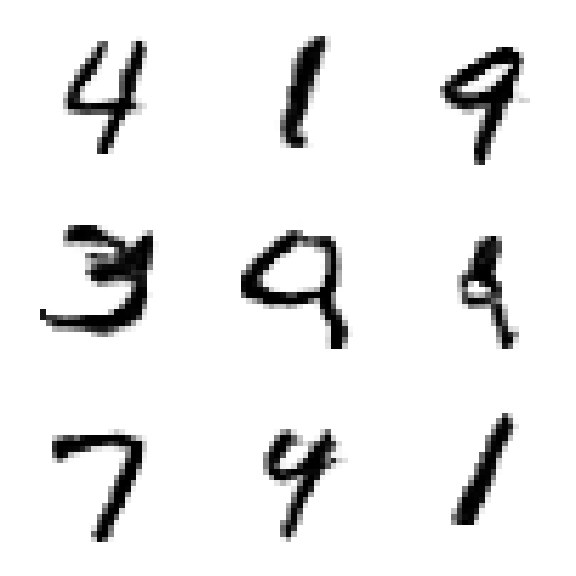 4 1 9
3 9 9
7 4 1